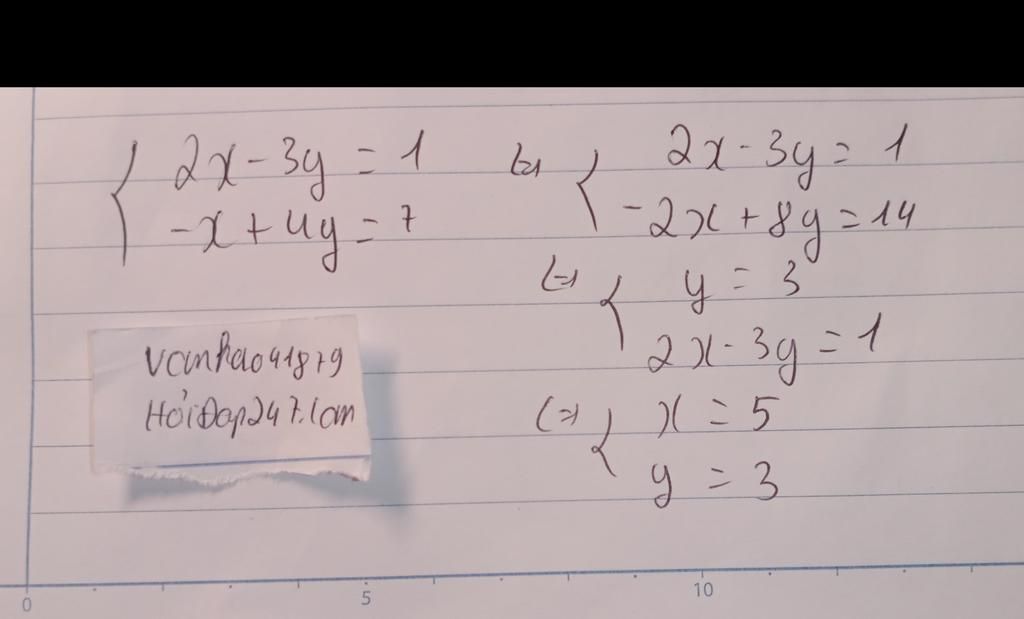 { 2x - 3y = 1 <=> { 2x - 3y = 1
-x + 4y = 7 -2x + 8y = 14
<=> { y = 3
2x - 3y = 1
<=> { x = 5
y = 3
vanhao41879
HỏiĐap247.com
0 5 10